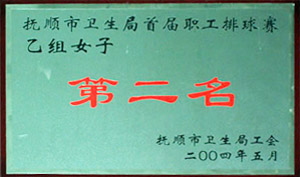 抚顺市卫生局首届职工排球赛
乙组女子
第二名
抚顺市卫生局工会
二〇〇四年五月